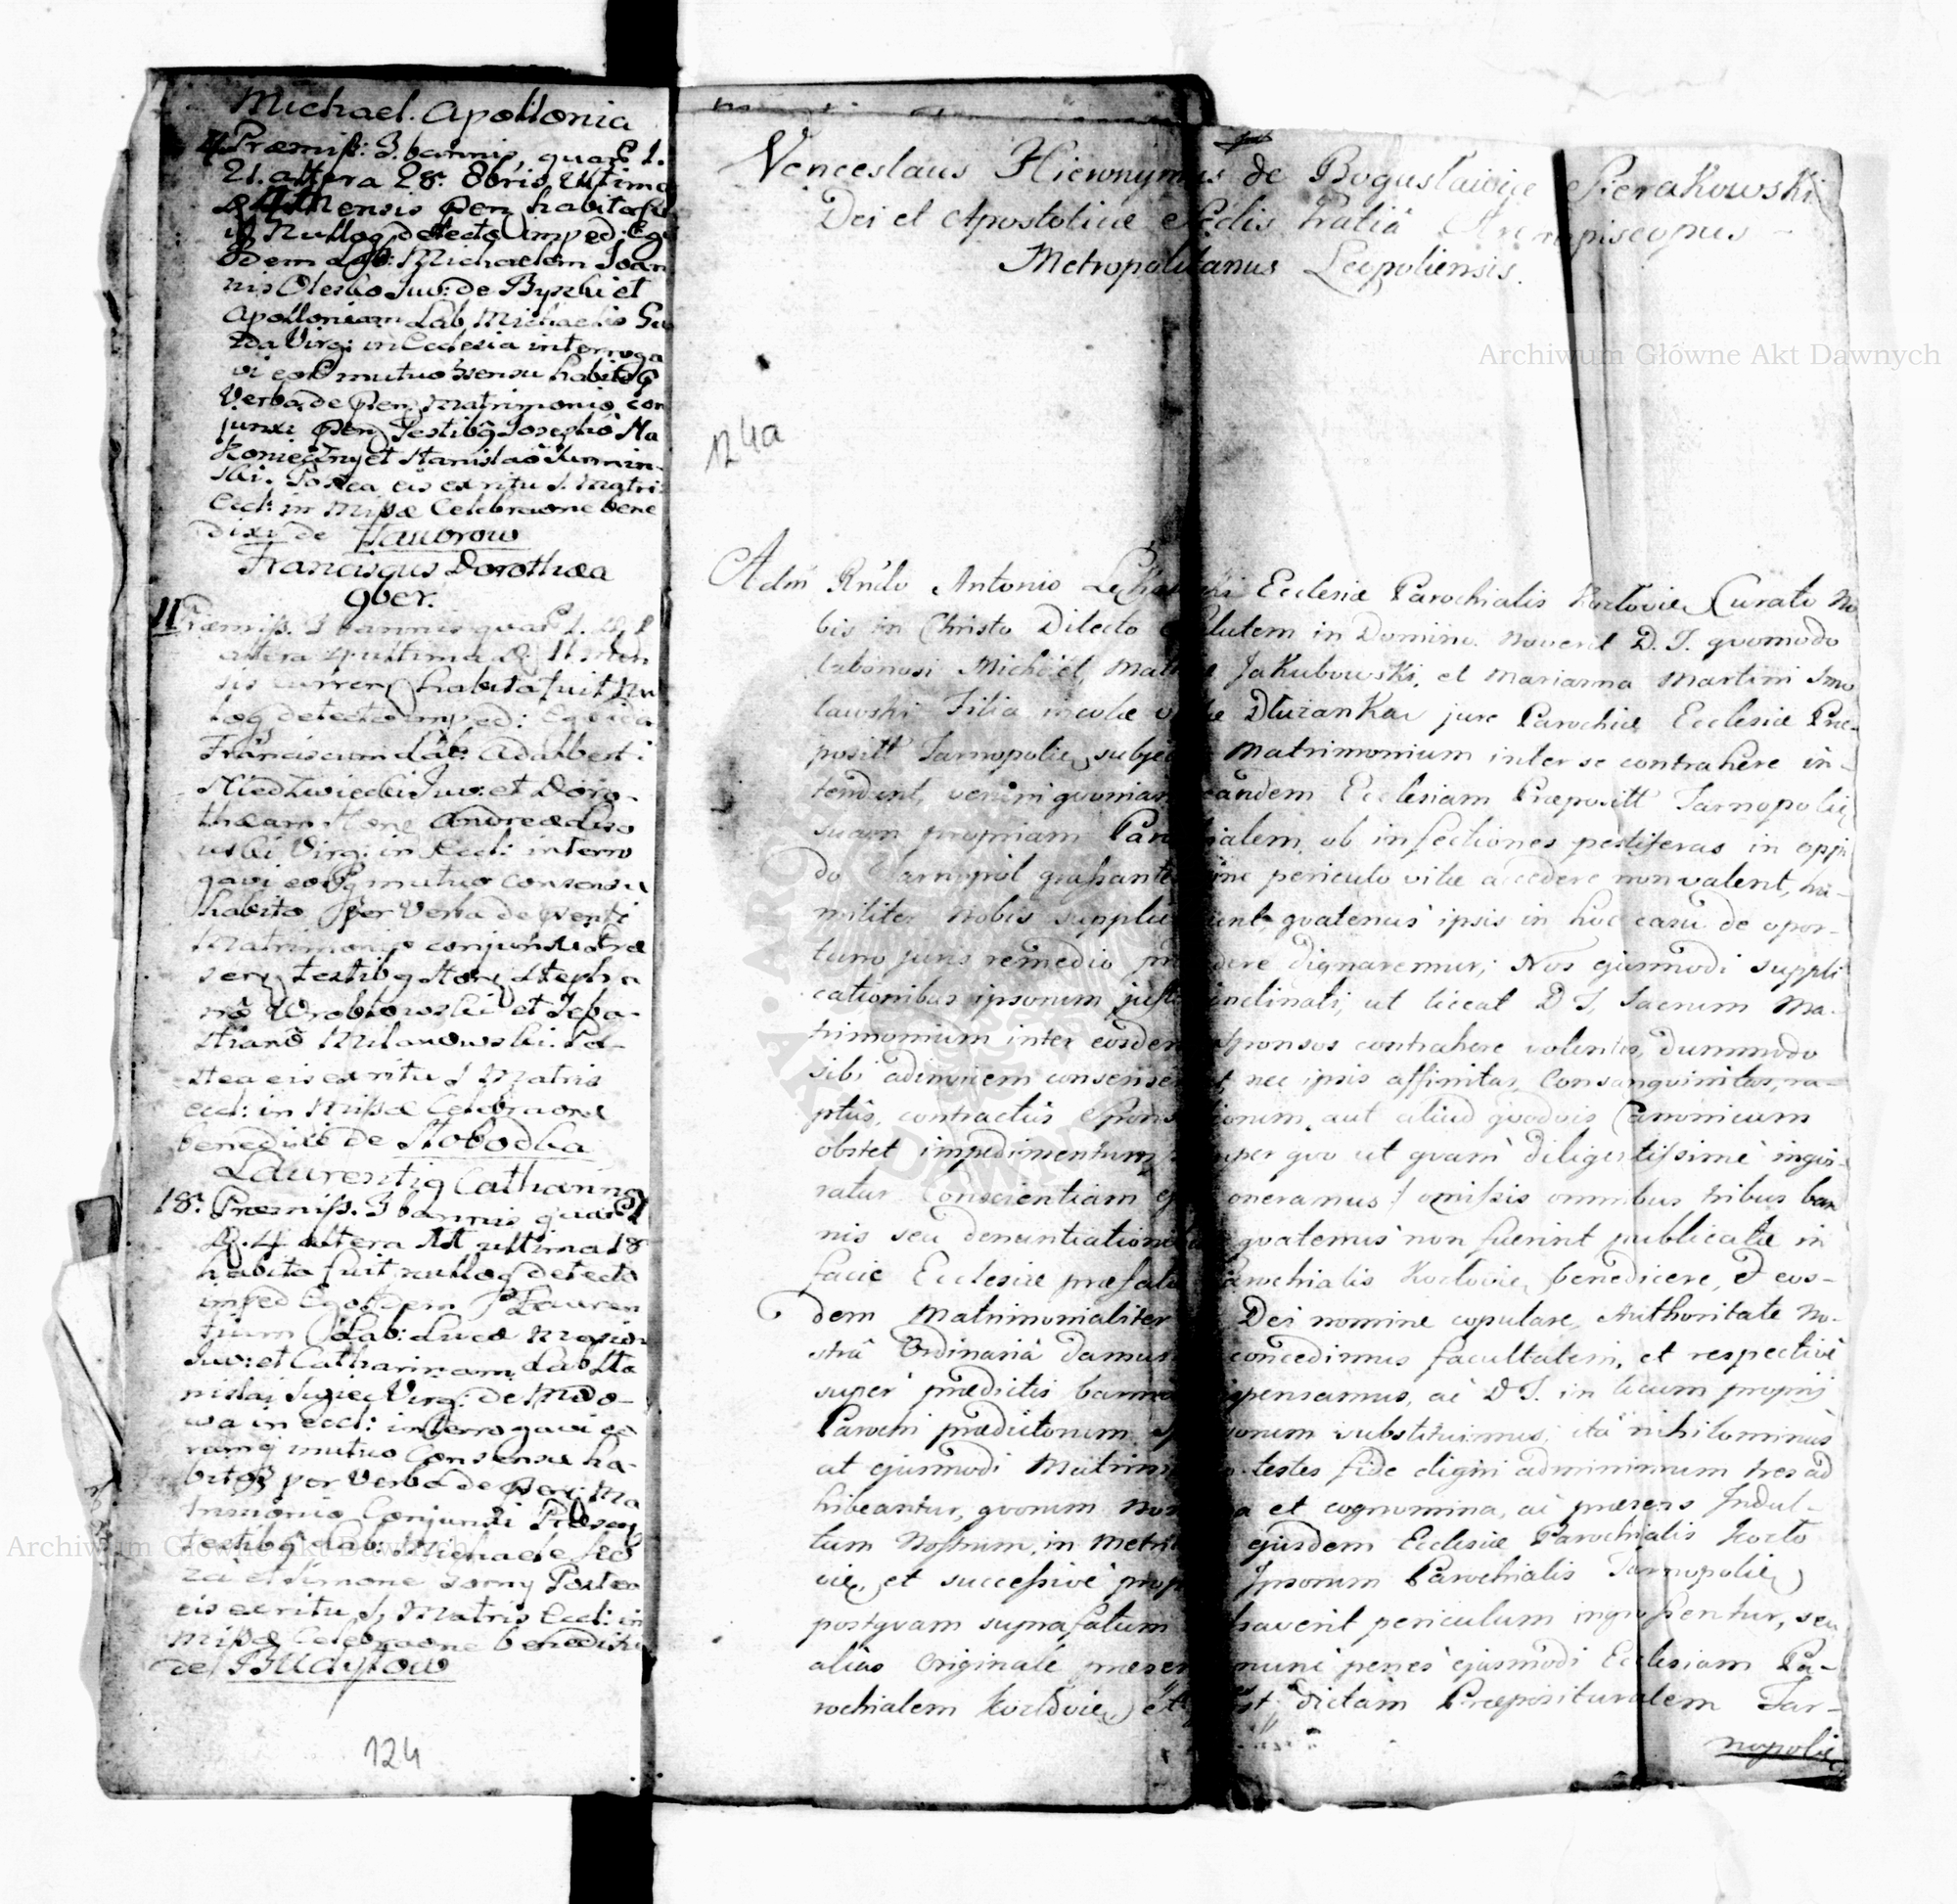 Michael. Apollonia
4 Præmiss: 3 bannis, quar 1.
21. altera 28. 8bris ultima
4 Mensis pen habita fu
it Nulloq detecto Imped: Ego
Idem Lab: Michaelem Joan
nis Olesko Juv: de Byszki et
Apolloniam Lab Michaelis
Virg: in Ecclesia interroga
vi eoq mutuo 9sensu habitoq
Verba de Pen Matrimonio con
junxi pen Testibq Josepho Ma
et Stanislao
ski. Postea eis ex ritu S. Matri
Eccl: in Missæ Celebraone bene
dixi de Taurow
Franciscus Dorothæa
9ver.
11 Præmiss. 3 bannis quar 1. D. 1
altera 4 ultima D. 11 Men
sis curren habita fuit Nu
loq detecto imped: Ego ide
Franciscum Lab: Adalberti
Niedzwiecki Juv: et Doro-
thæam Hone Andreæ
wski Virg: in Eccl: interro
gavi eosq mutuo Consensu
habito per Verba de
Matrimonio conjunxi Præ
sen Testibq Hon Stepha
no Wroblowski et Seba-
stiano Milanowski. Po-
stea eis ex ritu S Matris
eccl: in Missæ Celebraone
benedixi de Slobodka
Laurentiq Catharina
18. Præmiss. 3 bannis quar
D. 4 altera 11 ultima 18
habita fuit nulloq detecto
imped Ego Idem Lauren
tium Lab: Lucæ
Juv: et Catharinam Lab Sta
nislai Virg: de
in eccl: interrogavi eo
rumq mutuo Consensu ha-
bitoq per Verba de Pen: Ma
trimonio Conjunxi Præsen
testibq Lab: Michaele
et Simone Gorny Postea
eis ex ritu S. Matris Eccl: in
missæ Celebraone benedixi
de Budyłow
124
Venceslaus Hieronymus de Bogusławice Sierakowski
Dei et Apostolicæ Sedis Gratiâ Archiepiscopus
Metropolitanus Leopoliensis.
124a
Adm Rndo Antonio Ecclesiæ Parochialis Kozloviens Curato No
bis in Christo Dilecto Salutem in Domino. Noverit D. T. quomodo
laboriosi Michael, Jakubowski, et Marianna Martini Smo
lawski Filia incolæ villæ Dłużanka jure Parochiæ Ecclesiæ Præ-
positt Tarnopolien subjecti Matrimonium inter se contrahere in-
tendunt, verum quoniam eandem Ecclesiam Præpositt Tarnopolien
suam propriam Parochialem, ob infectiones pestiferas in oppi
do Tarnopol grassantes sine periculo vitæ accedere non valent, hu-
militer nobis supplicarunt quatenus ipsis in hoc casu de opor-
tuno juris remedio providere dignaremur; Nos ejusmodi suppli
cationibus ipsorum justis inclinati, ut liceat D T, Sacrum Ma-
trimonium inter eosdem sponsos contrahere volentes, dummodo
sibi adinvicem consenserint, nec ipsis affinitas, Consanguinitas, ra-
ptus, contractus Sponsationum, aut aliud quodvis Canonicum
obstet impedimentum, super quo ut quam diligentissime inqui-
ratur Conscientiam ejus oneramus / omissis omnibus tribus ban
nis seu denuntiationibus quatenus non fuerint publicatæ in
facie Ecclesiæ præfatæ Parochialis Kozlovien benedicere, et eos-
dem Matrimonialiter Dei nomine copulare, Authoritate No-
strâ Ordinariâ damus concedimus facultatem, et respectivè
super prædictis bannis dispensamus, ac D T. in locum proprij
Parochi prædictorum sponsorum substituimus; ità nihilominus
ut ejusmodi Matrimonio testes fide digni adminimum tres ad
hibeantur, quorum nomina et cognomina, ac præsens Indul-
tum Nostrum, in Metrica ejusdem Ecclesiæ Parochialis Kozlo
vien, et successivè propria Ipsorum Parochialis Tarnopolien
postquam supra fatum cessaverit periculum ingrossentur, seu
alias Originale præsens nunc penes ejusmodi Ecclesiam Pa-
rochialem Kozlovien, et post dictam Præposituralem Tar-
nopolien
Archiwum Główne Akt Dawnych
Archiwum Główne Akt Dawnych